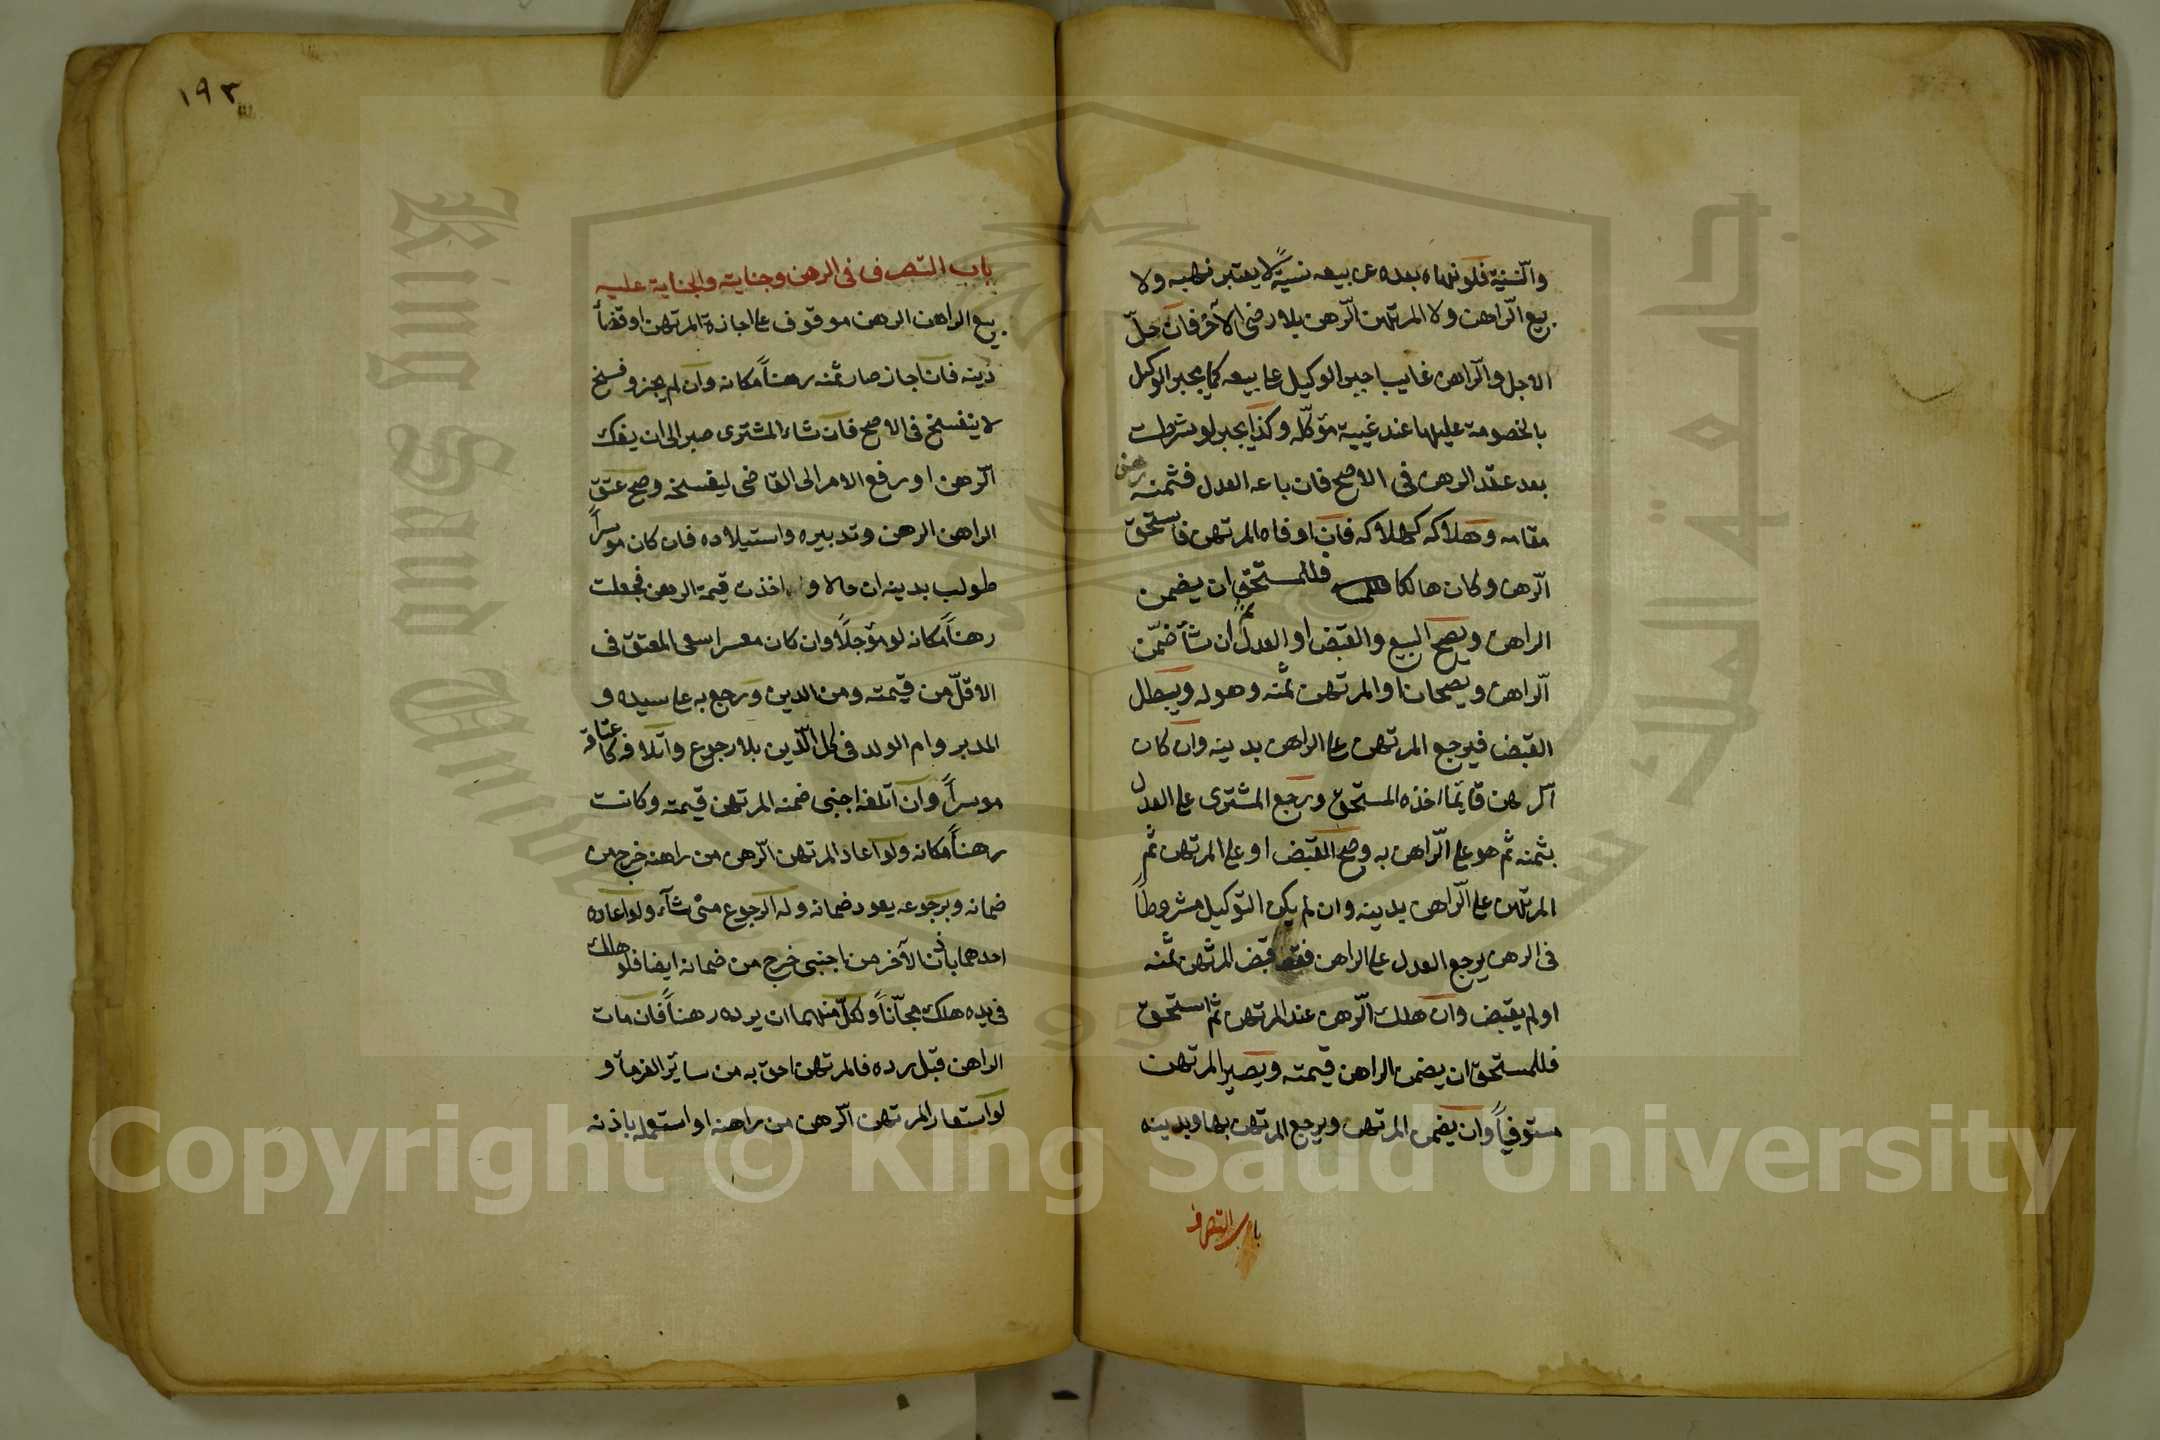 والنسية فلو نهاه بعده عن بيعه نسيةً لا يعتبر نهيه ولا
يبيع الراهن ولا المرتهن الرهن بلا رضى الآخر فان حلّ
الاجل والراهن غايب اجبر الوكيل على بيعه كما يجبر الوكيل
بالخصومة عليها عند غيبة مؤكّله وكذا يجبر لو شرطت
بعد عقد الرهن في الاصح فان باعه العدل فثمنه رهن
مقامه وهلاكه كهلاكه فان اوفاه المرتهن فاستحق
الرهن وكان هالكا فللمستحق ان يضمن
الراهن ويصح البيع والقبض او العدل ثم ان شآ ضمّن
الراهن ويصحان او المرتهن ثمنه وهو له ويبطل
القبض فيرجع المرتهن على الراهن بدينه وان كان
الرهن قايمًا اخذه المستحق ورجع المشترى على العدل
بثمنه ثم هو على الراهن به وصح القبض او على المرتهن ثم
المرتهن على الراهن بدينه وان لم يكن التوكيل مشروطًا
في الرهن يرجع العدل على الراهن فقط قبض المرتهن ثمنه
او لم يقبض وان هلك الرهن عند المرتهن ثم استحق
فللمستحق ان يضمن الراهن قيمته ويصير المرتهن
مستوفيًا وان يضمن المرتهن ويرجع المرتهن بها وبدينه
باب التصرف
١٩٣
باب التصرف في الرهن وجنايته والجناية عليه
بيع الراهن الرهن موقوف على اجازة المرتهن او قضآ
دينه فان اجاز صار ثمنه رهنًا مكانه وان لم يجز وفسخ
لا ينفسخ في الاصح فان شاء المشترى صبر الى ان يفك
الرهن او رفع الامر الى القاضى ليفسخه وصح عتق
الراهن الرهن وتدبيره واستيلاده فان كان موسراً
طولب بدينه ان حالا و اخذت قيمة الرهن فجعلت
رهنًا مكانه لو مؤجلًا وان كان معسرا سعى المعتق في
الاقلّ من قيمته ومن الدين ورجع به على سيده و
المدبر وام الولد في كل الدّين بلا رجوع واتلافه كاعتاقه
موسراً وان اتلفه اجنبى ضمنه المرتهن قيمته وكانت
رهنًا مكانه ولو اعاد المرتهن الرهن من راهنه خرج من
ضمانه وبرجوعه يعود ضمانه وله الرجوع متى شآء ولو اعاده
احدهما باذن الآخر من اجنبى خرج من ضمانه ايضا فلو هلك
في يده هلك مجّانًا ولكلّ منهما ان يرده رهنًا فان مات
الراهن قبل رده فالمرتهن احق به من سائر الغرمآ و
لو استعار المرتهن الرهن من راهنه او استعمله باذنه
Copyright © King Saud University